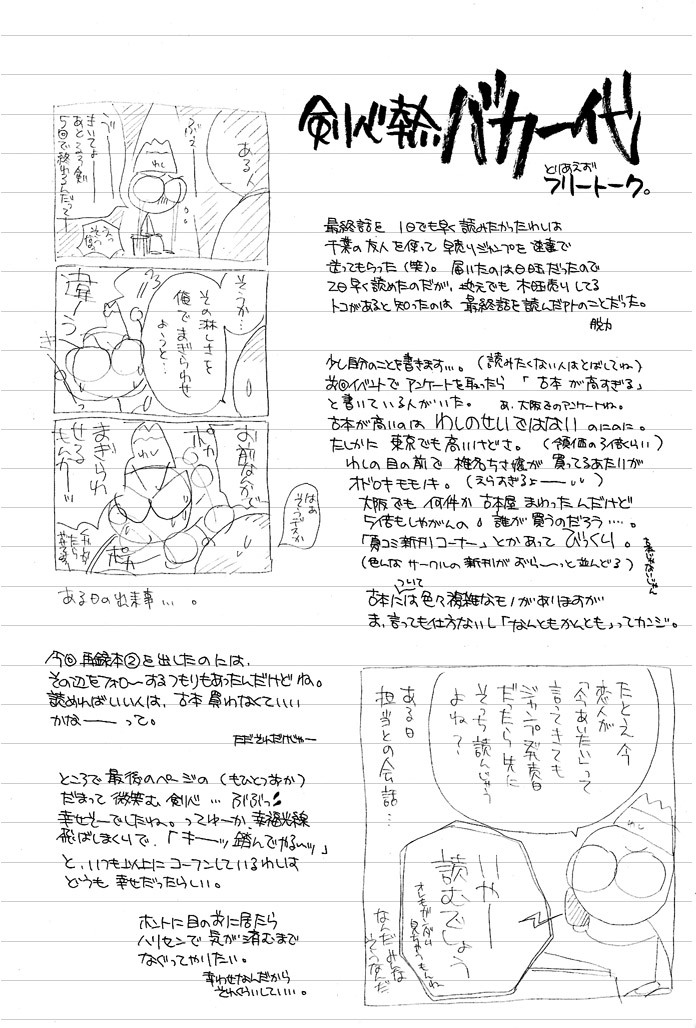 剣心華伝 バカ一代
とりあえず
フリートーク。
最終話を 1日でも早く読みたかったわしは
千葉の友人を使って早売りジャンプを速達で
送ってもらった(笑)。届いたのは日曜だったので
2日早く読めたのだが、地元でも木曜売りしてる
トコがあると知ったのは 最終話を読んだアトのことだった。
脱力
少し自分のことを書きます…。(読みたくない人はとばしてね)
前回イベントでアンケートを取ったら「古本が高すぎる」
と書いている人がいた。 あ、大阪でのアンケートね。
古本が高いのは わしのせいではない のにのに。
たしかに 東京でも高いけどさ。(領価の3倍くらい)
わしの目の前で 椎名ちさ嬢が 買ってるあたりが
オドロキモモノキ。(えらすぎるよーー)
大阪でも 何件か 古本屋 まわったんだけど
5倍もしやがんの。誰が買うのだろう…。
「夏コミ新刊コーナー」とかあって びっくり。
(色んな サークルの新刊が ずら〜っと並んどる)
古本には色々複雑なモノがありますが
ついて
ま、言っても仕方ないし「なんともかんとも」ってカンジ。
ある人
わし
きいてよー
あと
5回で終わるんだってー
えっ
そう…
その淋しさを
俺でまぎらわせ
ようと…
違う
お前なんかで
まぎらわ
せる
もんかーッ
ポカ
ポカ
わし
はあ
そうデスか
ある日の出来事…。
今回 再録本②を出したのには、
その辺をフォローするつもりもあったんだけどね。
読めればいい人は、古本 買わなくていい
かなーー って。
ただそんだけじゃー
ところで 最後のページの (もひとつまか)
だまって 微笑む 剣心 … ぶぶっ
幸せそーでしたね。ってゆーか、幸福光線
飛ばしまくりで、「キーッッ 踏んでやるーッ」
と、いつも以上に コーフンしているわしは
どうも 幸せだったらしい。
ホントに目の前に居たら
ハリセンで 気が済むまで
なぐってやりたい。
幸わせなんだから
それくらいしていい…。
ある日
担当との会話…
たとえ今
恋人が
「今あいたい」って
言ってきても
ジャンプ発売日
だったら先に
そっち読んじゃう
よね?
いやー
読むでしょう
なんだみな
そうなんだ
わし